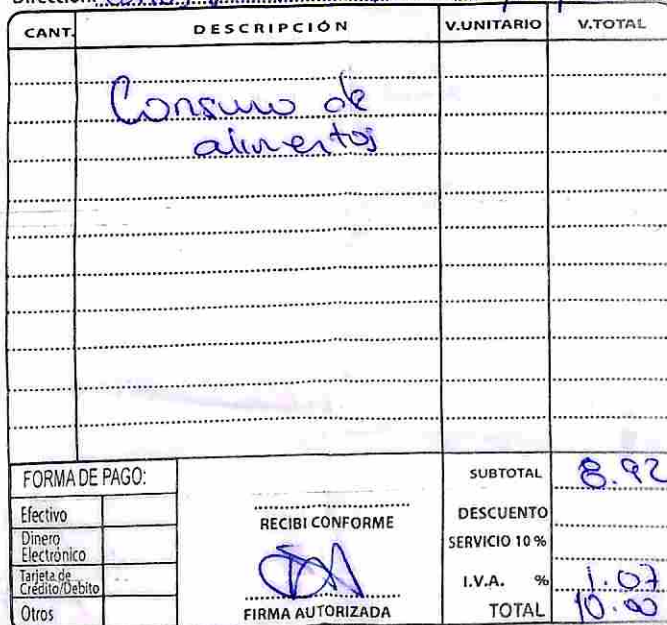 Dirección:
CANT. DESCRIPCIÓN V.UNITARIO V.TOTAL
Consumo de
alimentos
FORMA DE PAGO:
Efectivo
Dinero
Electrónico
Tarjeta de
Crédito/Debito
Otros
RECIBI CONFORME
FIRMA AUTORIZADA
SUBTOTAL 8.92
DESCUENTO
SERVICIO 10 %
I.V.A. % 1.07
TOTAL 10.00